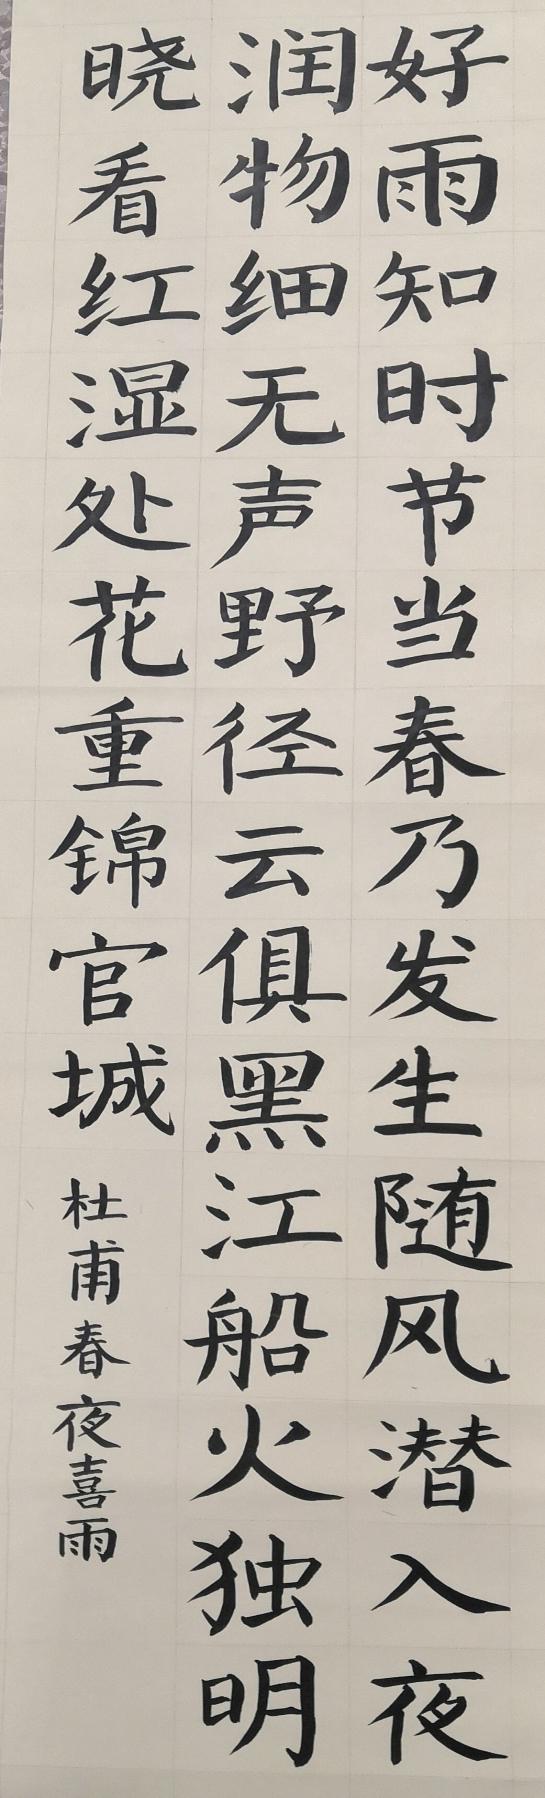 好雨知时节当春乃发生随风潜入夜
润物细无声野径云俱黑江船火独明
晓看红湿处花重锦官城
杜甫春夜喜雨